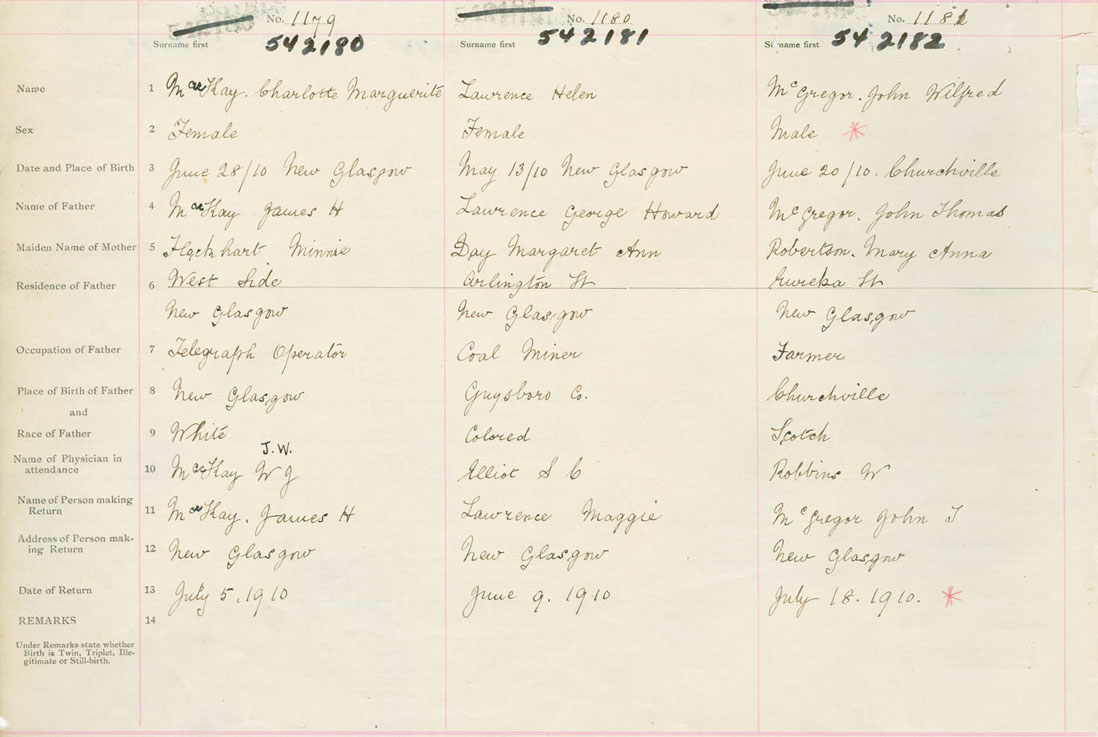 No. 1179 No. 1180 No. 1181
Surname first 542180 Surname first 542181 Surname first 542182
Name 1 MacKay. Charlotte Marguerite Lawrence Helen McGregor. John Wilfred
Sex 2 Female Female Male *
Date and Place of Birth 3 June 28/10 New Glasgow May 13/10 New Glasgow June 20/10. Churchville
Name of Father 4 MacKay James H Lawrence George Howard McGregor. John Thomas
Maiden Name of Mother 5 Flockhart Minnie Day Margaret Ann Robertson. Mary Anna
Residence of Father 6 West Side Arlington St Eureka St
New Glasgow New Glasgow New Glasgow
Occupation of Father 7 Telegraph Operator Coal Miner Farmer
Place of Birth of Father 8 New Glasgow Guysboro Co. Churchville
and
Race of Father 9 White Colored Scotch
J.W.
Name of Physician in
attendance 10 MacKay W J Elliot S C Robbins W
Name of Person making
Return 11 MacKay. James H Lawrence Maggie McGregor John T
Address of Person mak-
ing Return 12 New Glasgow New Glasgow New Glasgow
Date of Return 13 July 5. 1910 June 9. 1910 July 18. 1910. *
REMARKS 14
Under Remarks state whether
Birth is Twin, Triplet, Ille-
gitimate or Still-birth.